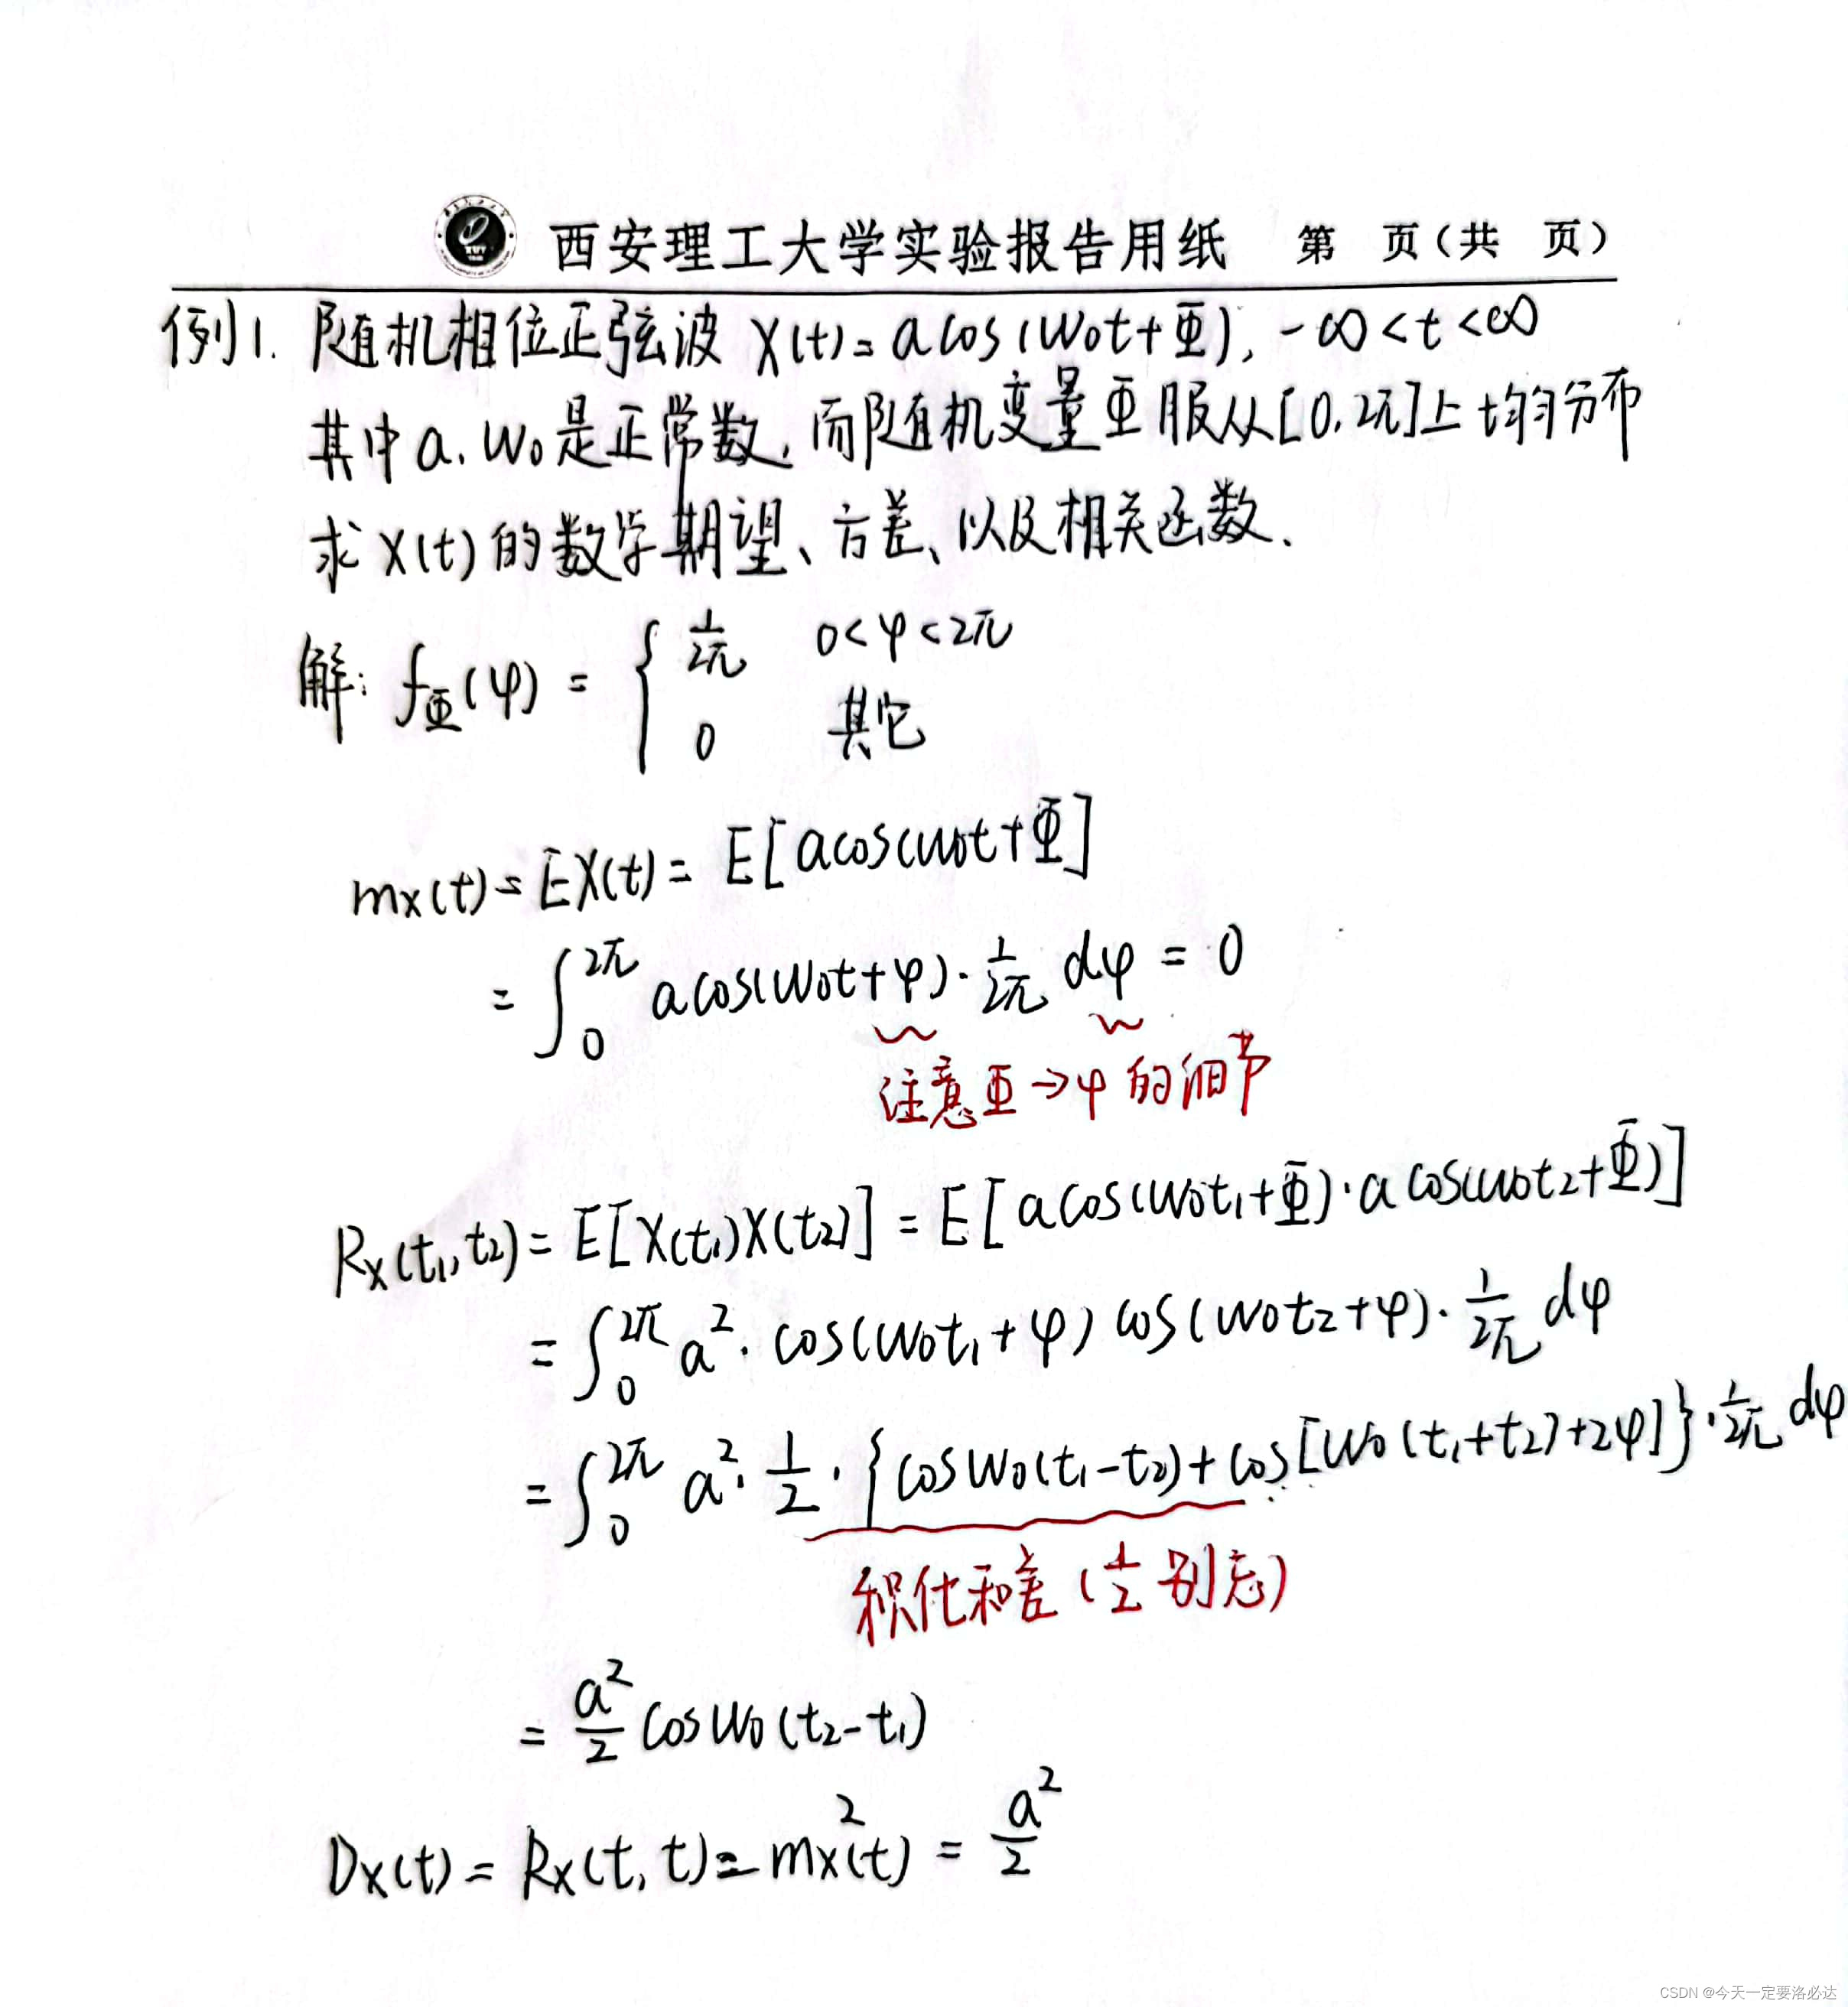 西安理工大学实验报告用纸 第 页(共 页)
例1. 随机相位正弦波 X(t)=acos(W₀t+Φ), -∞<t<∞
其中a,W₀是正常数,而随机变量Φ服从[0,2π]上均匀分布
求X(t)的数学期望、方差、以及相关函数.
解: f_Φ(φ) = { 1/2π 0<φ<2π
0 其它
m_X(t)=EX(t)=E[acos(W₀t+Φ]
=∫₀^{2π} acos(W₀t+φ)·1/2π dφ=0
注意Φ→φ的细节
R_X(t₁,t₂)=E[X(t₁)X(t₂)]=E[acos(W₀t₁+Φ)·acos(W₀t₂+Φ)]
=∫₀^{2π} a²·cos(W₀t₁+φ)cos(W₀t₂+φ)·1/2π dφ
=∫₀^{2π} a²·1/2·{cosW₀(t₁-t₂)+cos[W₀(t₁+t₂)+2φ]}·1/2π dφ
积化和差(1/2别忘)
=a²/2 cosW₀(t₂-t₁)
D_X(t)=R_X(t,t)-m_X²(t)=a²/2
CSDN @今天一定要洛必达